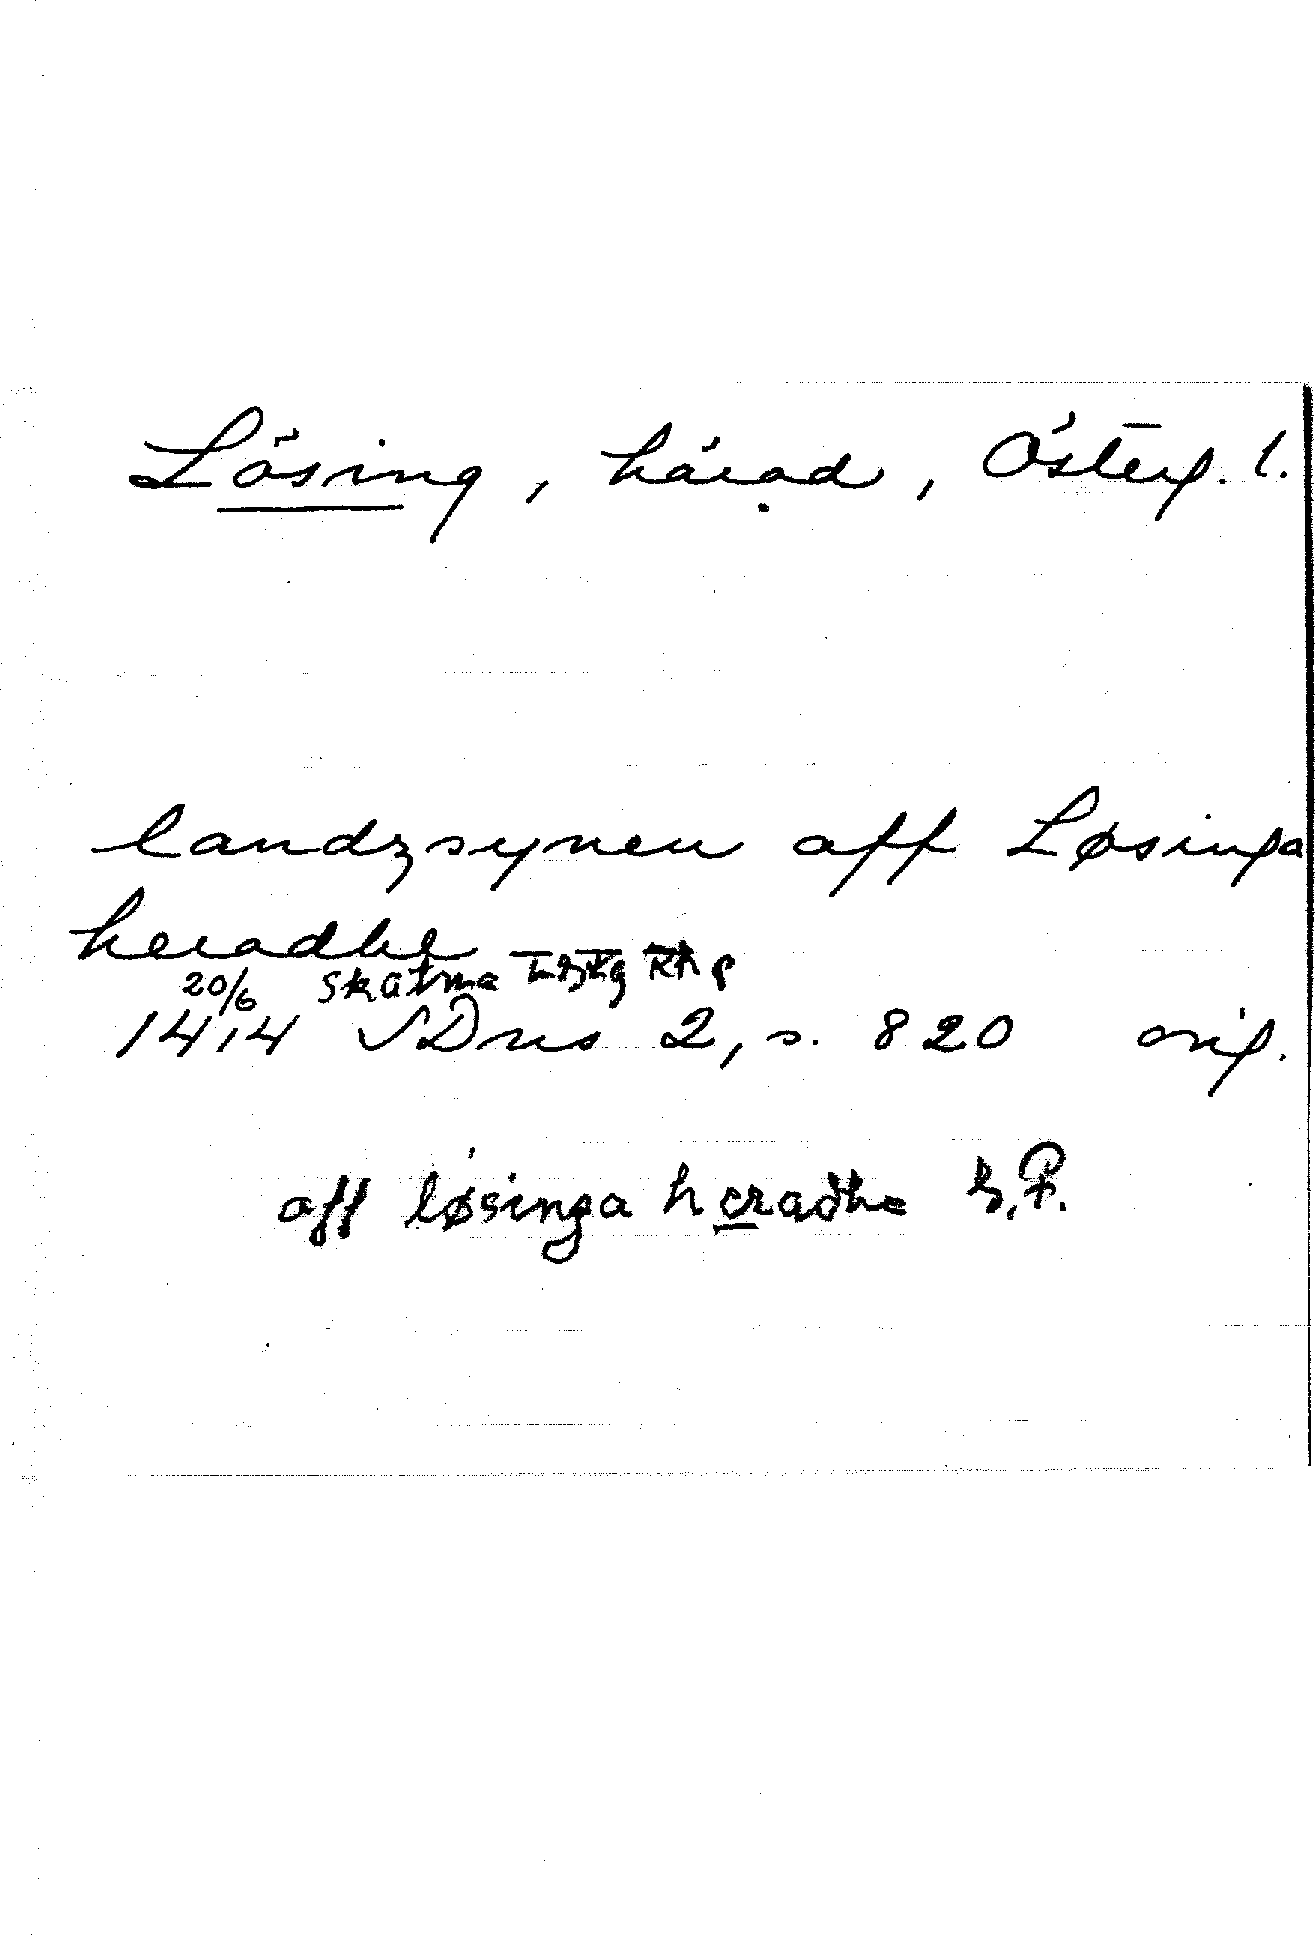 Lösing, härad, Österg. l.
landzsynen aff Løsinga
heradhe
20/6 Skatma
1414 SDns 2, s. 820 orig.
aff løsinga heradhe